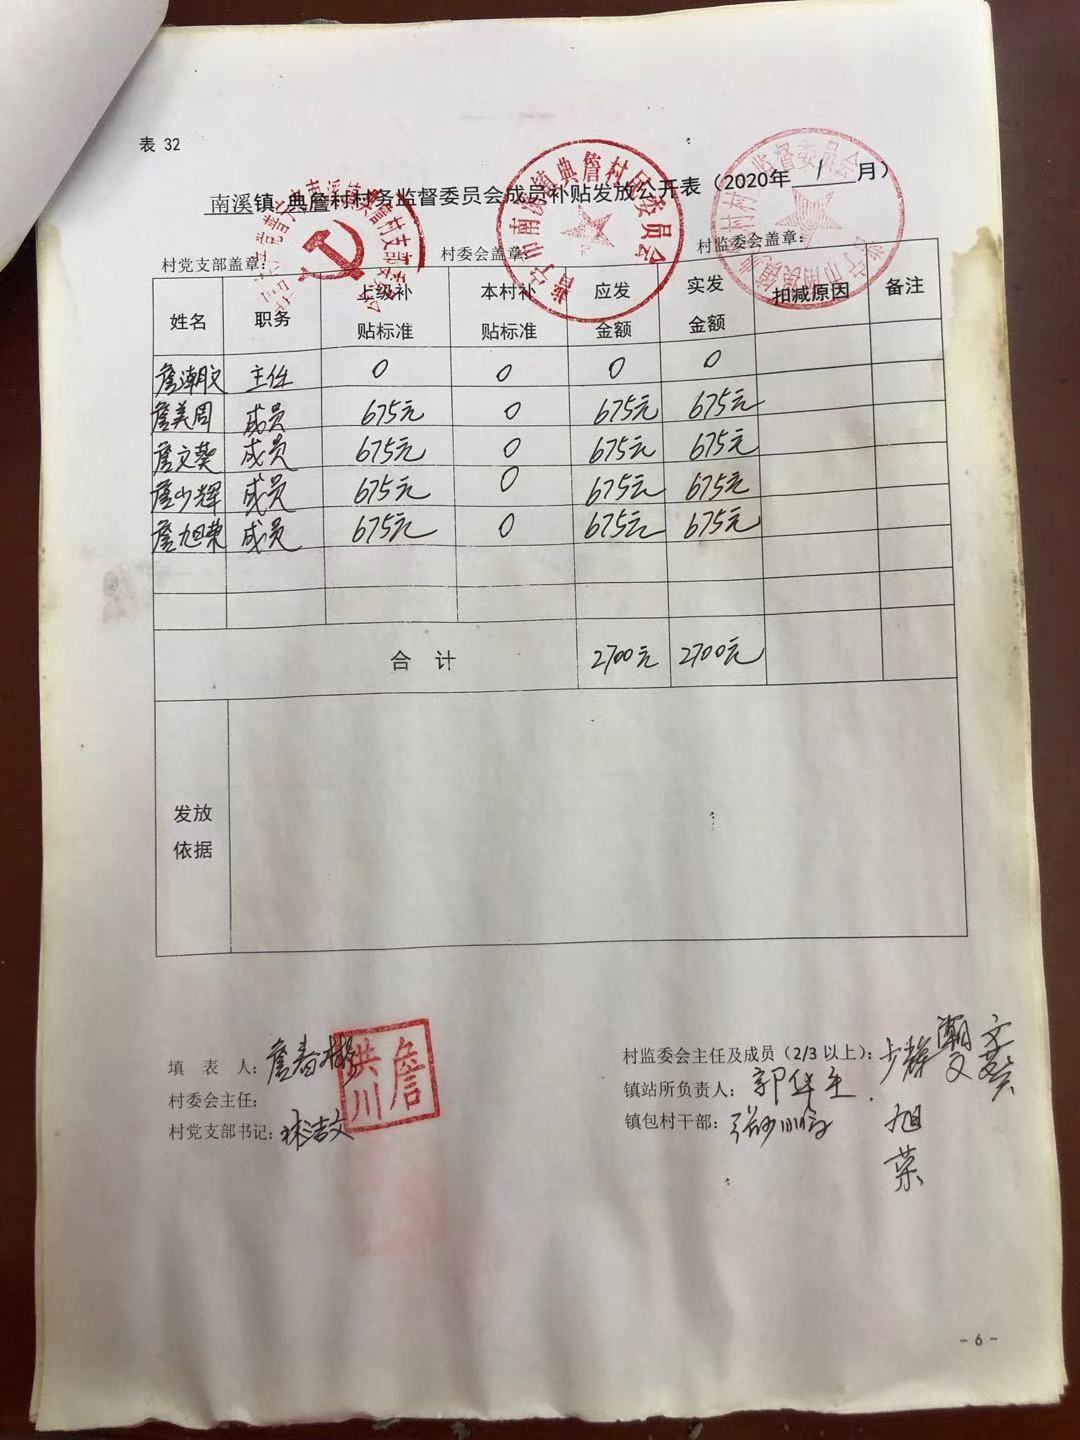 表 32
南溪镇 典詹村村务监督委员会成员补贴发放公开表（2020年 1 月）
村党支部盖章： 村委会盖章： 村监委会盖章：
普宁市南溪镇典詹村村民委员会
姓名 职务 上级补贴标准 本村补贴标准 应发金额 实发金额 扣减原因 备注
詹潮文 主任 0 0 0 0
詹美周 成员 675元 0 675元 675元
詹文葵 成员 675元 0 675元 675元
詹少辉 成员 675元 0 675元 675元
詹旭荣 成员 675元 0 675元 675元
合 计 2700元 2700元
发放依据
填 表 人：詹春彬
村委会主任： 詹洪川
村党支部书记： 洁文
村监委会主任及成员（2/3 以上）：少辉 潮文 文葵
旭荣
镇站所负责人：郭华
镇包村干部：
- 6 -